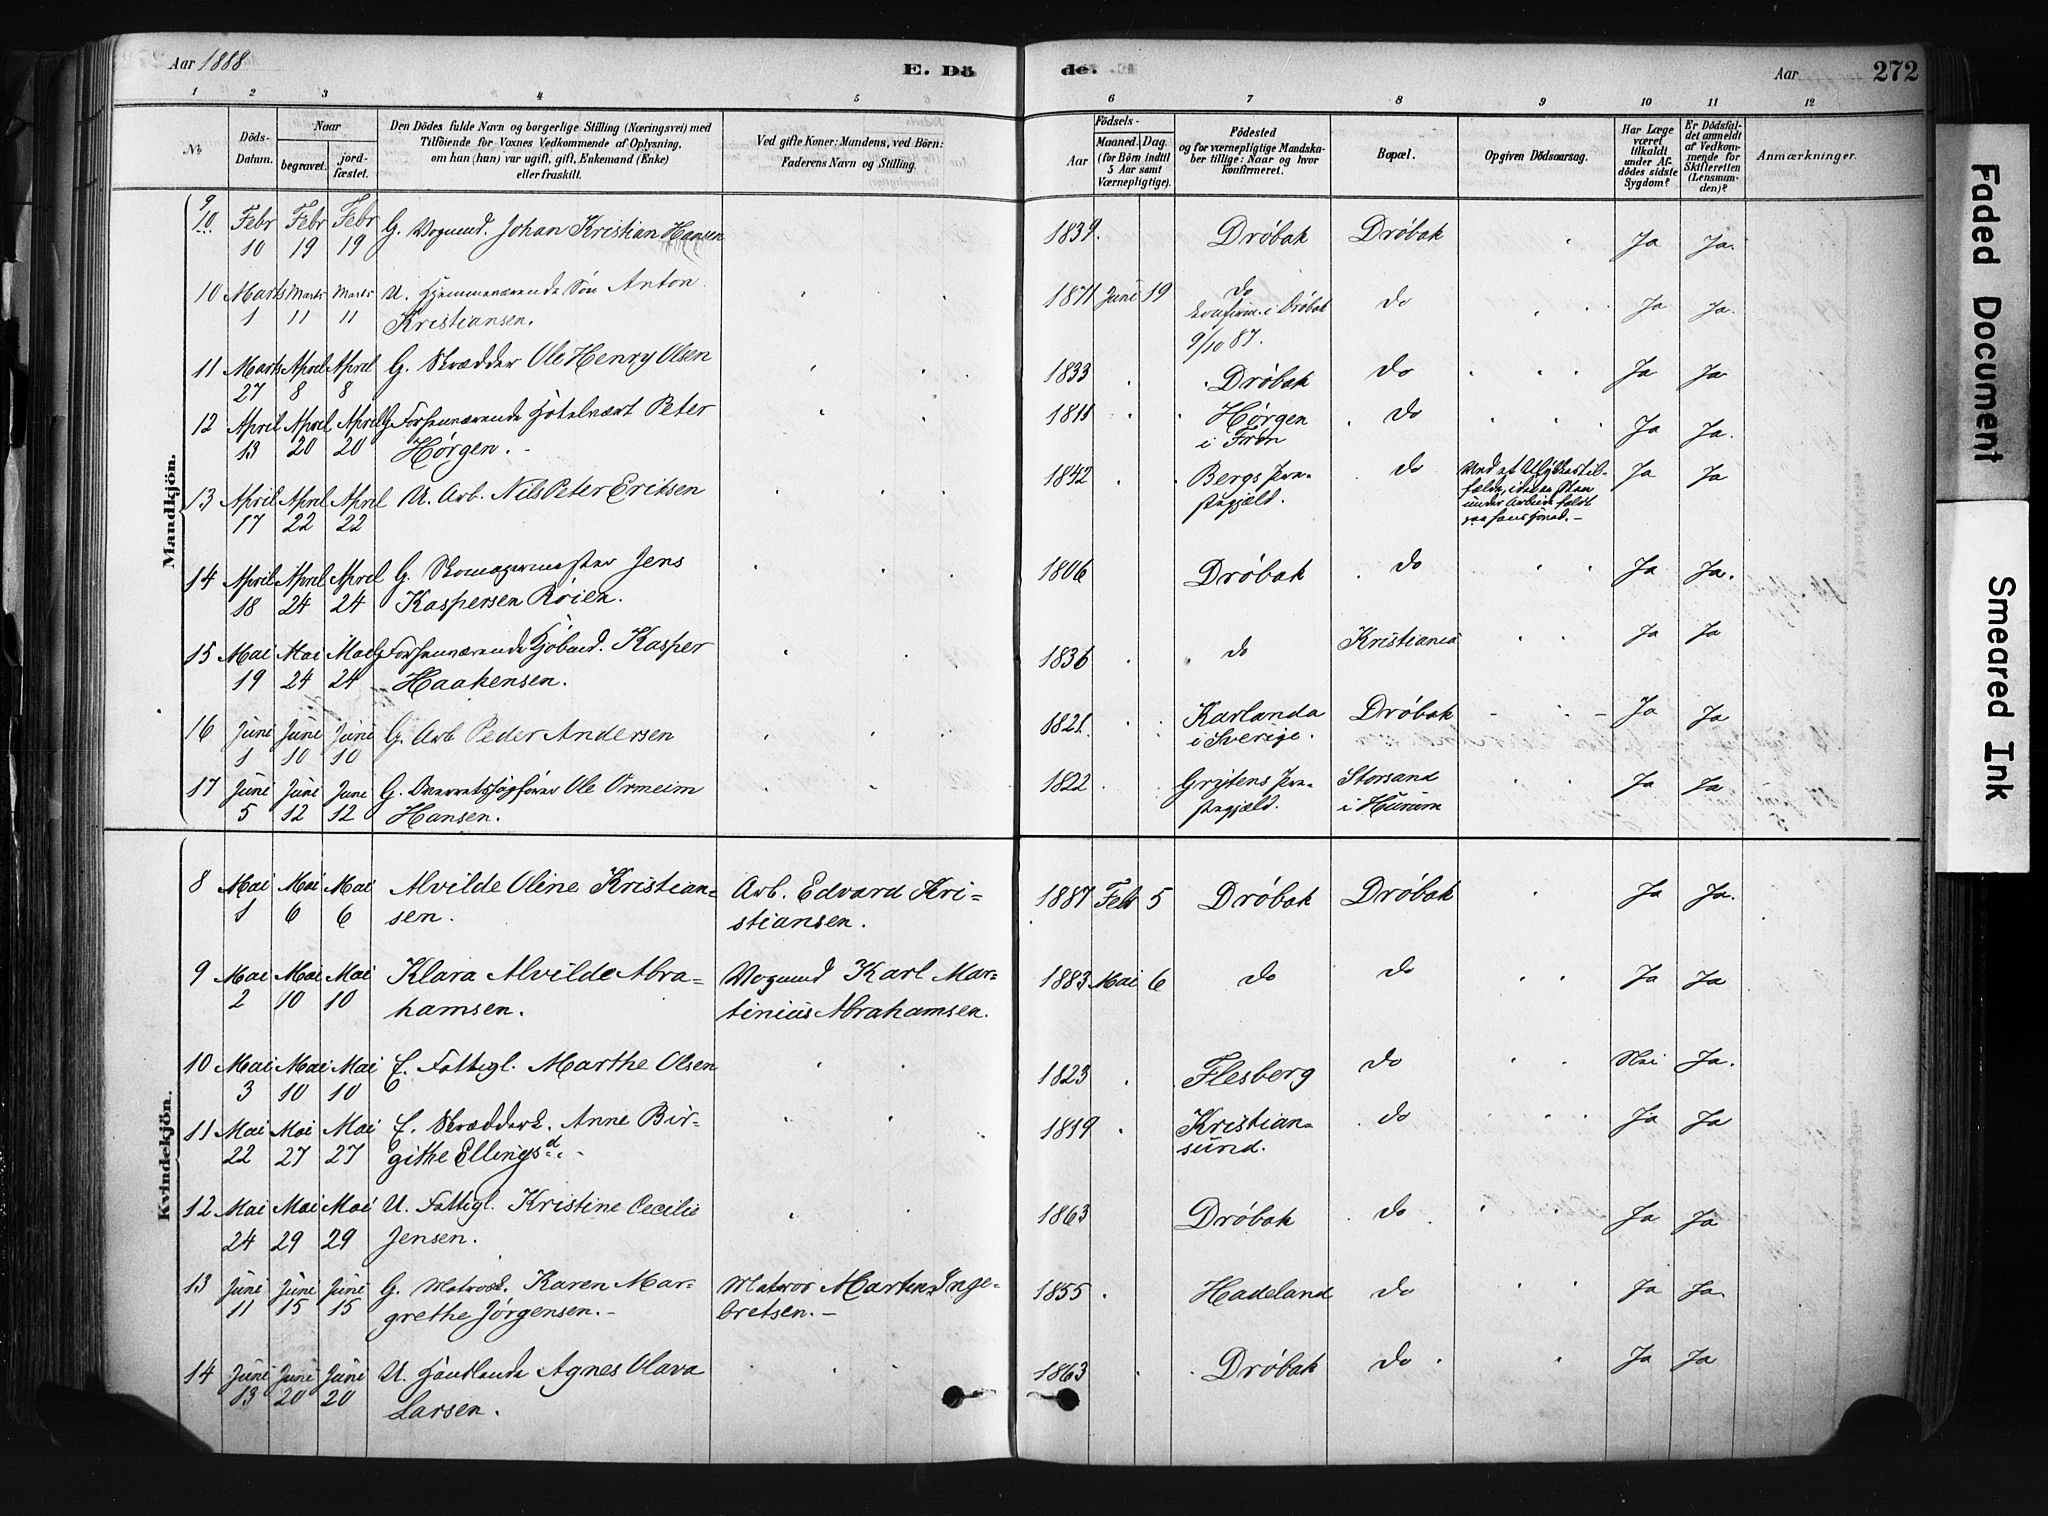 Aar 1888
E. Dö
de.
Aar
272
1 2 3 4 5 6 7 8 9 10 11 12
No
Döds-
Datum.
Naar
begravet.
jord-
fæstet.
Den Dödes fulde Navn og borgerlige Stilling (Næringsvei) med
Tilföiende for Voxnes Vedkommende af Oplysning,
om han (hun) var ugift, gift, Enkemand (Enke)
eller fraskilt.
Ved gifte Koner: Mandens, ved Börn:
Faderens Navn og Stilling.
Födsels-
Aar
Maaned. Dag.
(for Börn indtil
5 Aar samt
Værnepligtige).
Födested
og for værnepligtige Mandska-
ber tillige: Naar og hvor
konfirmeret.
Bopæl.
Opgiven Dödsaarsag.
Har Læge
været
tilkaldt
under Af-
dödes sidste
Sygdom?
Er Dödsfal-
det anmeldt
af Vedkom-
mende for
Skifteretten
(Lensman-
den)?
Anmærkninger.
Mandkjön.
9
10 Febr Febr Febr G. Vognmd. Johan Kristian Hansen 1839. Drøbak Drøbak Ja Ja.
10 19 19
10 Marts Marts Marts U. Hjemmeværende Søn Anton 1871 Juni 19 do do Ja Ja.
1 11 11 Kristiansen. Konfirm. i Drøbak
9/10 87.
11 Marts April April G. Skrædder Ole Henry Olsen 1833 Drøbak do Ja Ja
27 8 8
12 April April April G. Forhenværende Hotelvært Peter 1811 Hørgen do Ja Ja.
13 20 20 Hørgen. i Frøn
13 April April April U. Arb. Nils Peter Eriksen 1842 Bergs Præ- do Ved et Ulykkestil- Ja Ja
17 22 22 stegjæld. fælde,
under Arbeide faldt
paa hans
14 April April April G. Skomagermester Jens 1806 Drøbak do Ja Ja.
18 24 24 Kaspersen Røien.
15 Mai Mai Mai G. Forhenværende Kjøbmd. Kasper 1836 do Kristiania Ja Ja
19 24 24 Haakensen.
16 Juni Juni Juni G. Arb Peder Andersen 1821 Karlanda Drøbak Ja Ja
1 10 10 i Sverige.
17 Juni Juni Juni G. Ole Ormeim 1822 Grytens Præ- Storsand Ja Ja
5 12 12 Hansen. stegjæld. i Hurum
Kvindekjön.
8 Mai Mai Mai Alvilde Oline Kristian- Arb. Edvard Kri- 1887 Feb 5 Drøbak Drøbak Ja Ja.
1 6 6 sen. stiansen.
9 Mai Mai Mai Klara Alvilde Abra- Vognmd Karl Mar- 1883 Mai 6 do do Ja Ja
2 10 10 hamsen. tinius Abrahamsen.
10 Mai Mai Mai E. Fattigl. Marthe Olsen 1823 Flesberg do Nei Ja.
3 10 10
11 Mai Mai Mai E. Skrædder Anne Bir- 1819 Kristian- do Ja Ja
22 27 27 githe Ellingsd. sund.
12 Mai Mai Mai U. Fattigl. Kristine Cecilie 1863 Drøbak do Ja Ja
24 29 29 Jensen.
13 Juni Juni Juni G. Matrosk. Karen Mar- Matros Martin Inge- 1855 Hadeland do Ja Ja
11 15 15 grethe Jørgensen. bretsen.
14 Juni Juni Juni U. Agnes Olava 1863 Drøbak do Ja Ja
13 20 20 Larsen.
Faded Document
Smeared Ink